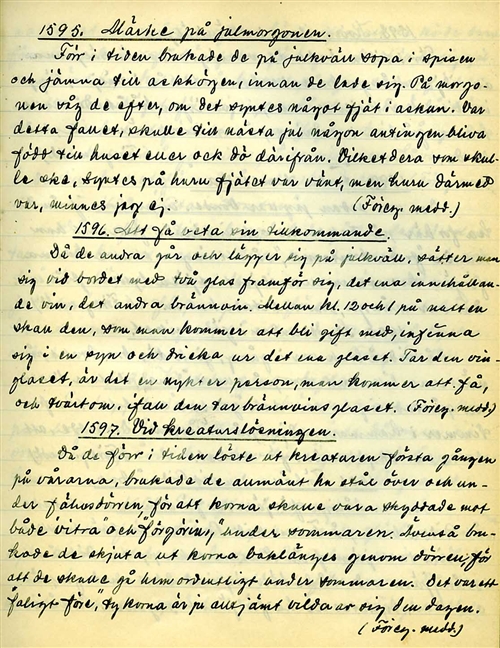 1595. Märke på julmorgonen.
Förr i tiden brukade de på julkväll sopa i spisen
och jämna till askhögen, innan de lade sig. På morgo-
nen såg de efter, om det syntes något fjät i askan. Var
detta fallet, skulle till nästa jul någon antingen bliva
född till huset eller ock dö därifrån. Vilketdera som skul-
le ske, syntes på huru fjätet var vänt, men huru därmed
var, minnes jag ej. (Föreg. medd.)
1596. Att få veta sin tillkommande.
Då de andra går och lägger sig på julkväll, sätter man
sig vid bordet med två glas framför sig, det ena innehållan-
de vin, det andra brännvin. Mellan kl. 12 och 1 på natten
skall den, som man kommer att bli gift med, infinna
sig i en syn och dricka ur det ena glaset. Tar den vin-
glaset, är det en nykter person, man kommer att få,
och tvärtom, ifall den tar brännvinsglaset. (Föreg. medd.)
1597. Vid kreaturslösningen.
Då de förr i tiden löste ut kreaturen första gången
på vårarna, brukade de allmänt ha stål över och un-
der fähusdörren, för att korna skulle vara skyddade mot
både "vitra" och "förgöring," under sommaren. Även så bru-
kade de skjuta ut korna baklänges genom dörren för
att de skulle gå hem ordentligt under sommaren. Det var ett
"faligt före," ty korna är ju alltjämt vilda av sig den dagen.
(Föreg. medd.)